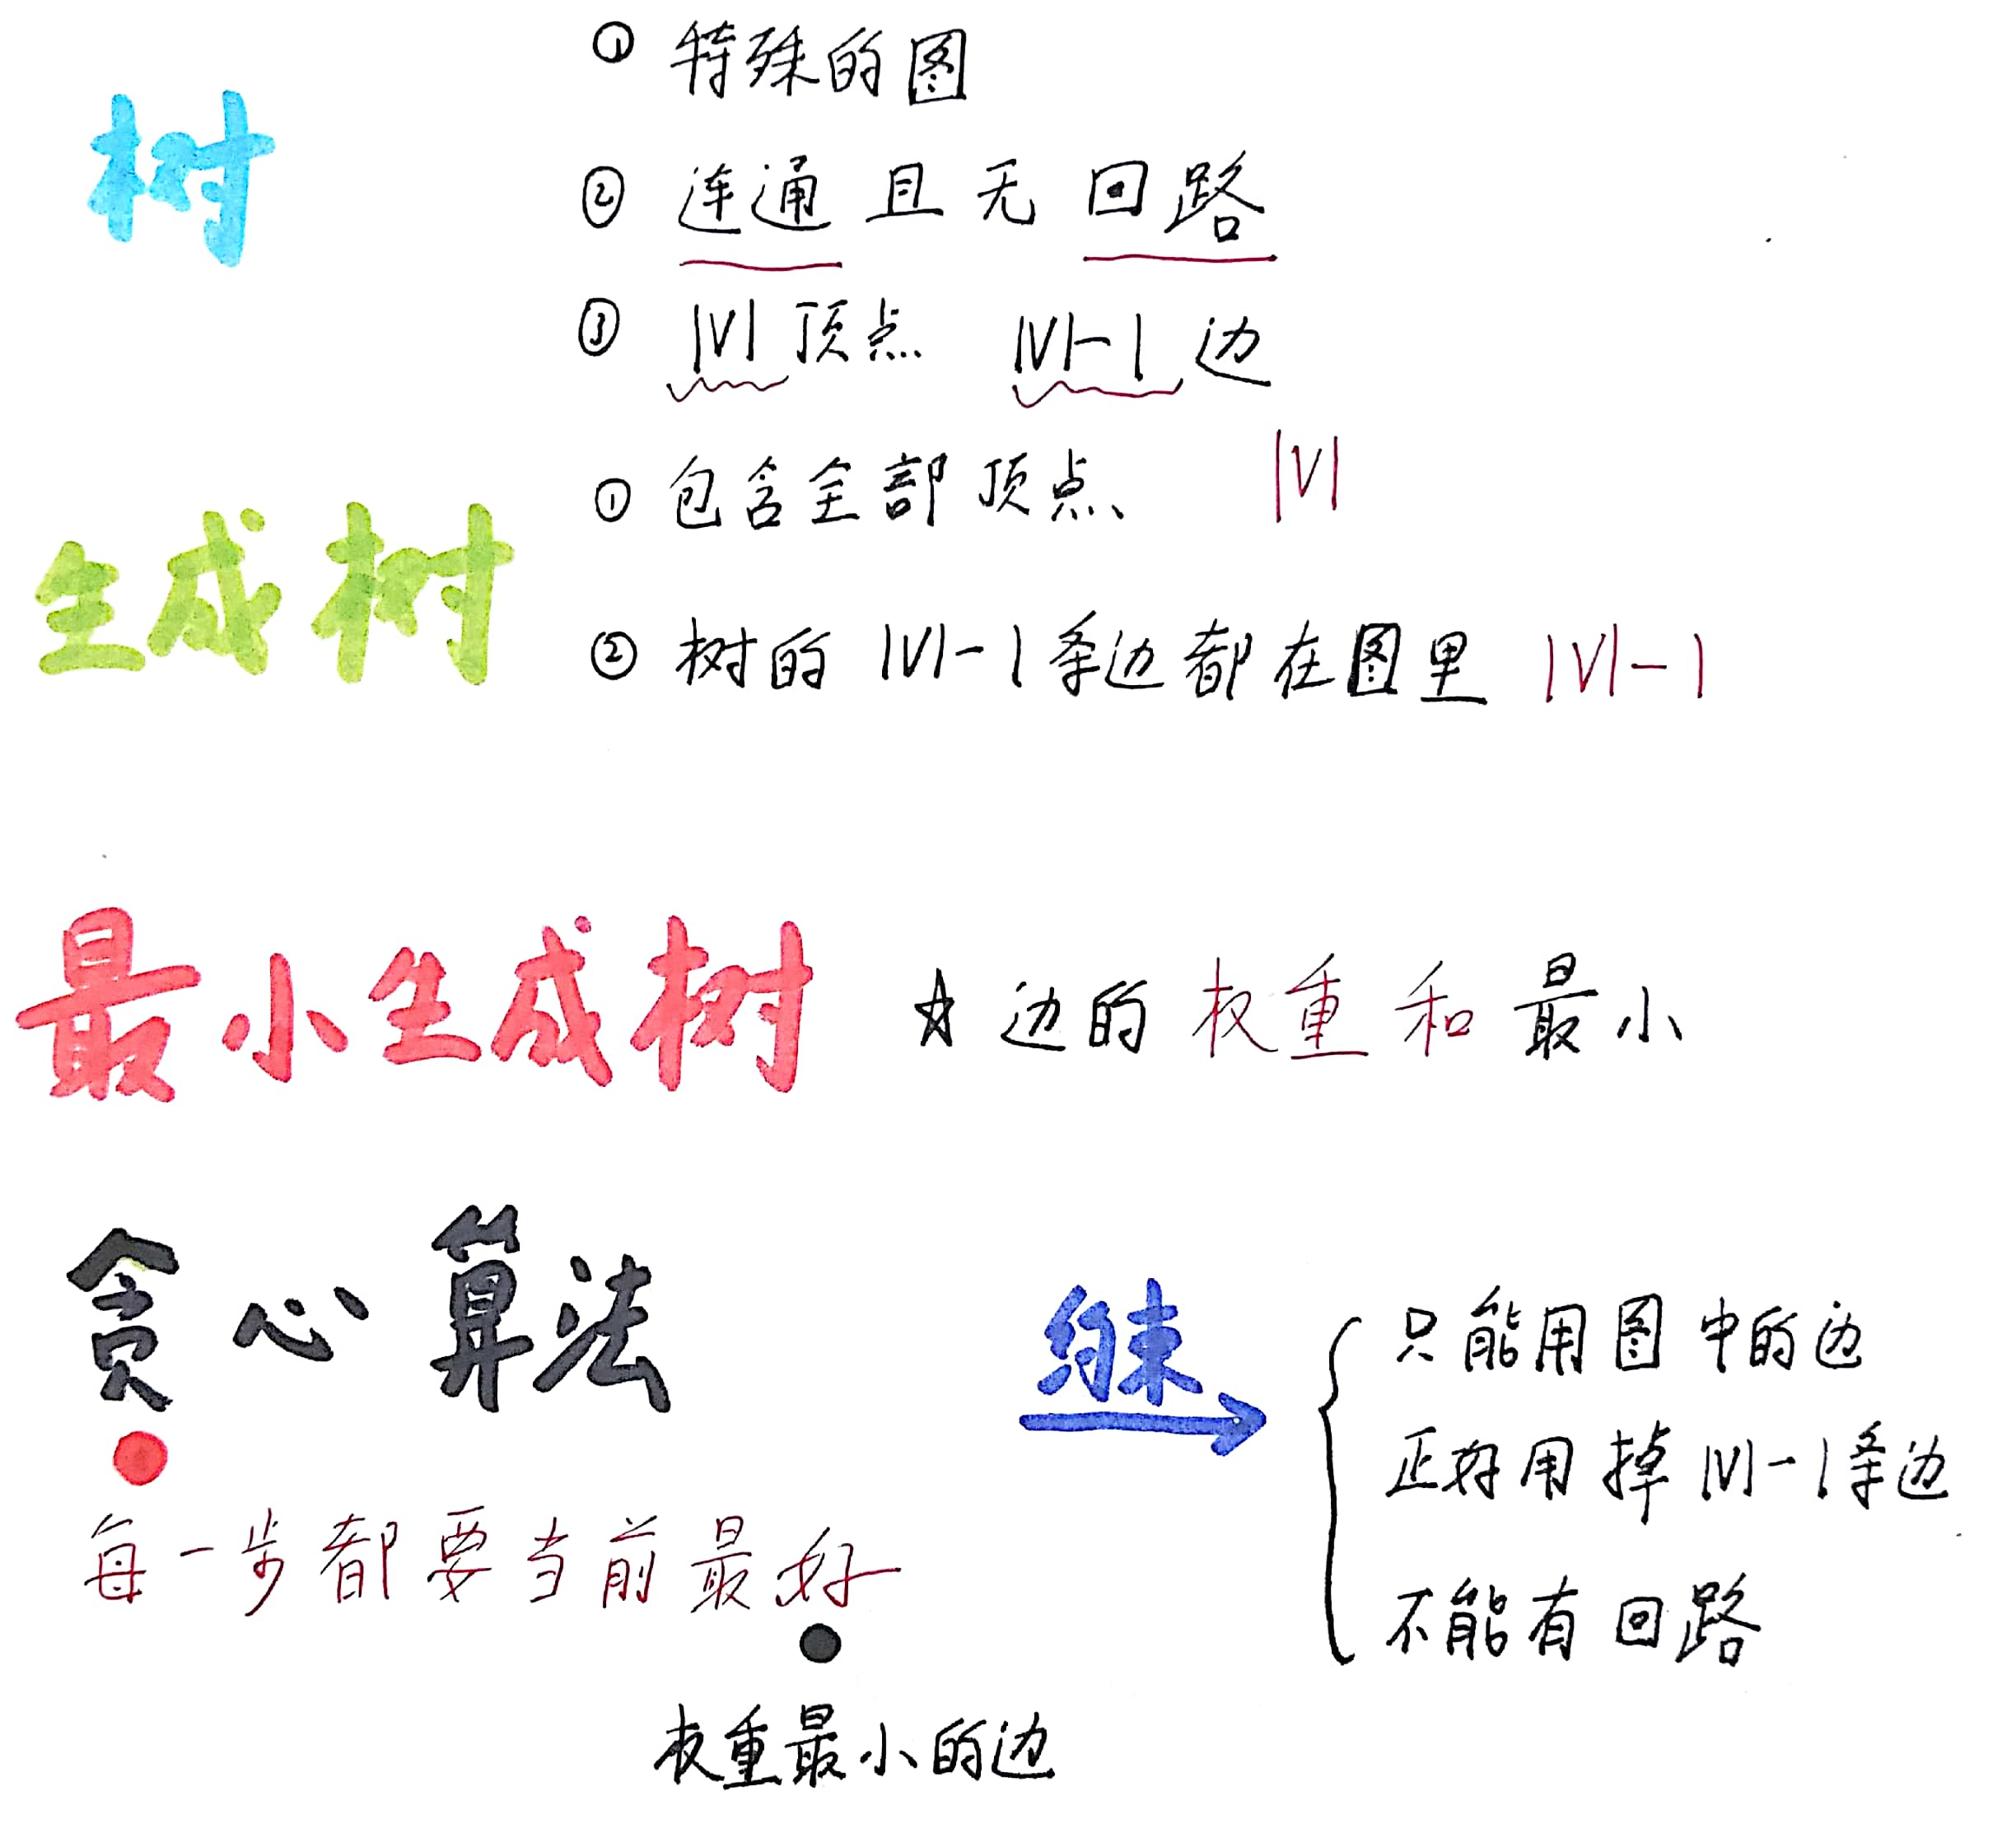 树
① 特殊的图
② 连通且无回路
③ |V| 顶点 |V|-1 边
生成树
① 包含全部顶点 |V|
② 树的 |V|-1 条边都在图里 |V|-1
最小生成树 ☆ 边的权重和最小
贪心算法
每一步都要当前最好
权重最小的边
约束
只能用图中的边
正好用掉 |V|-1 条边
不能有回路